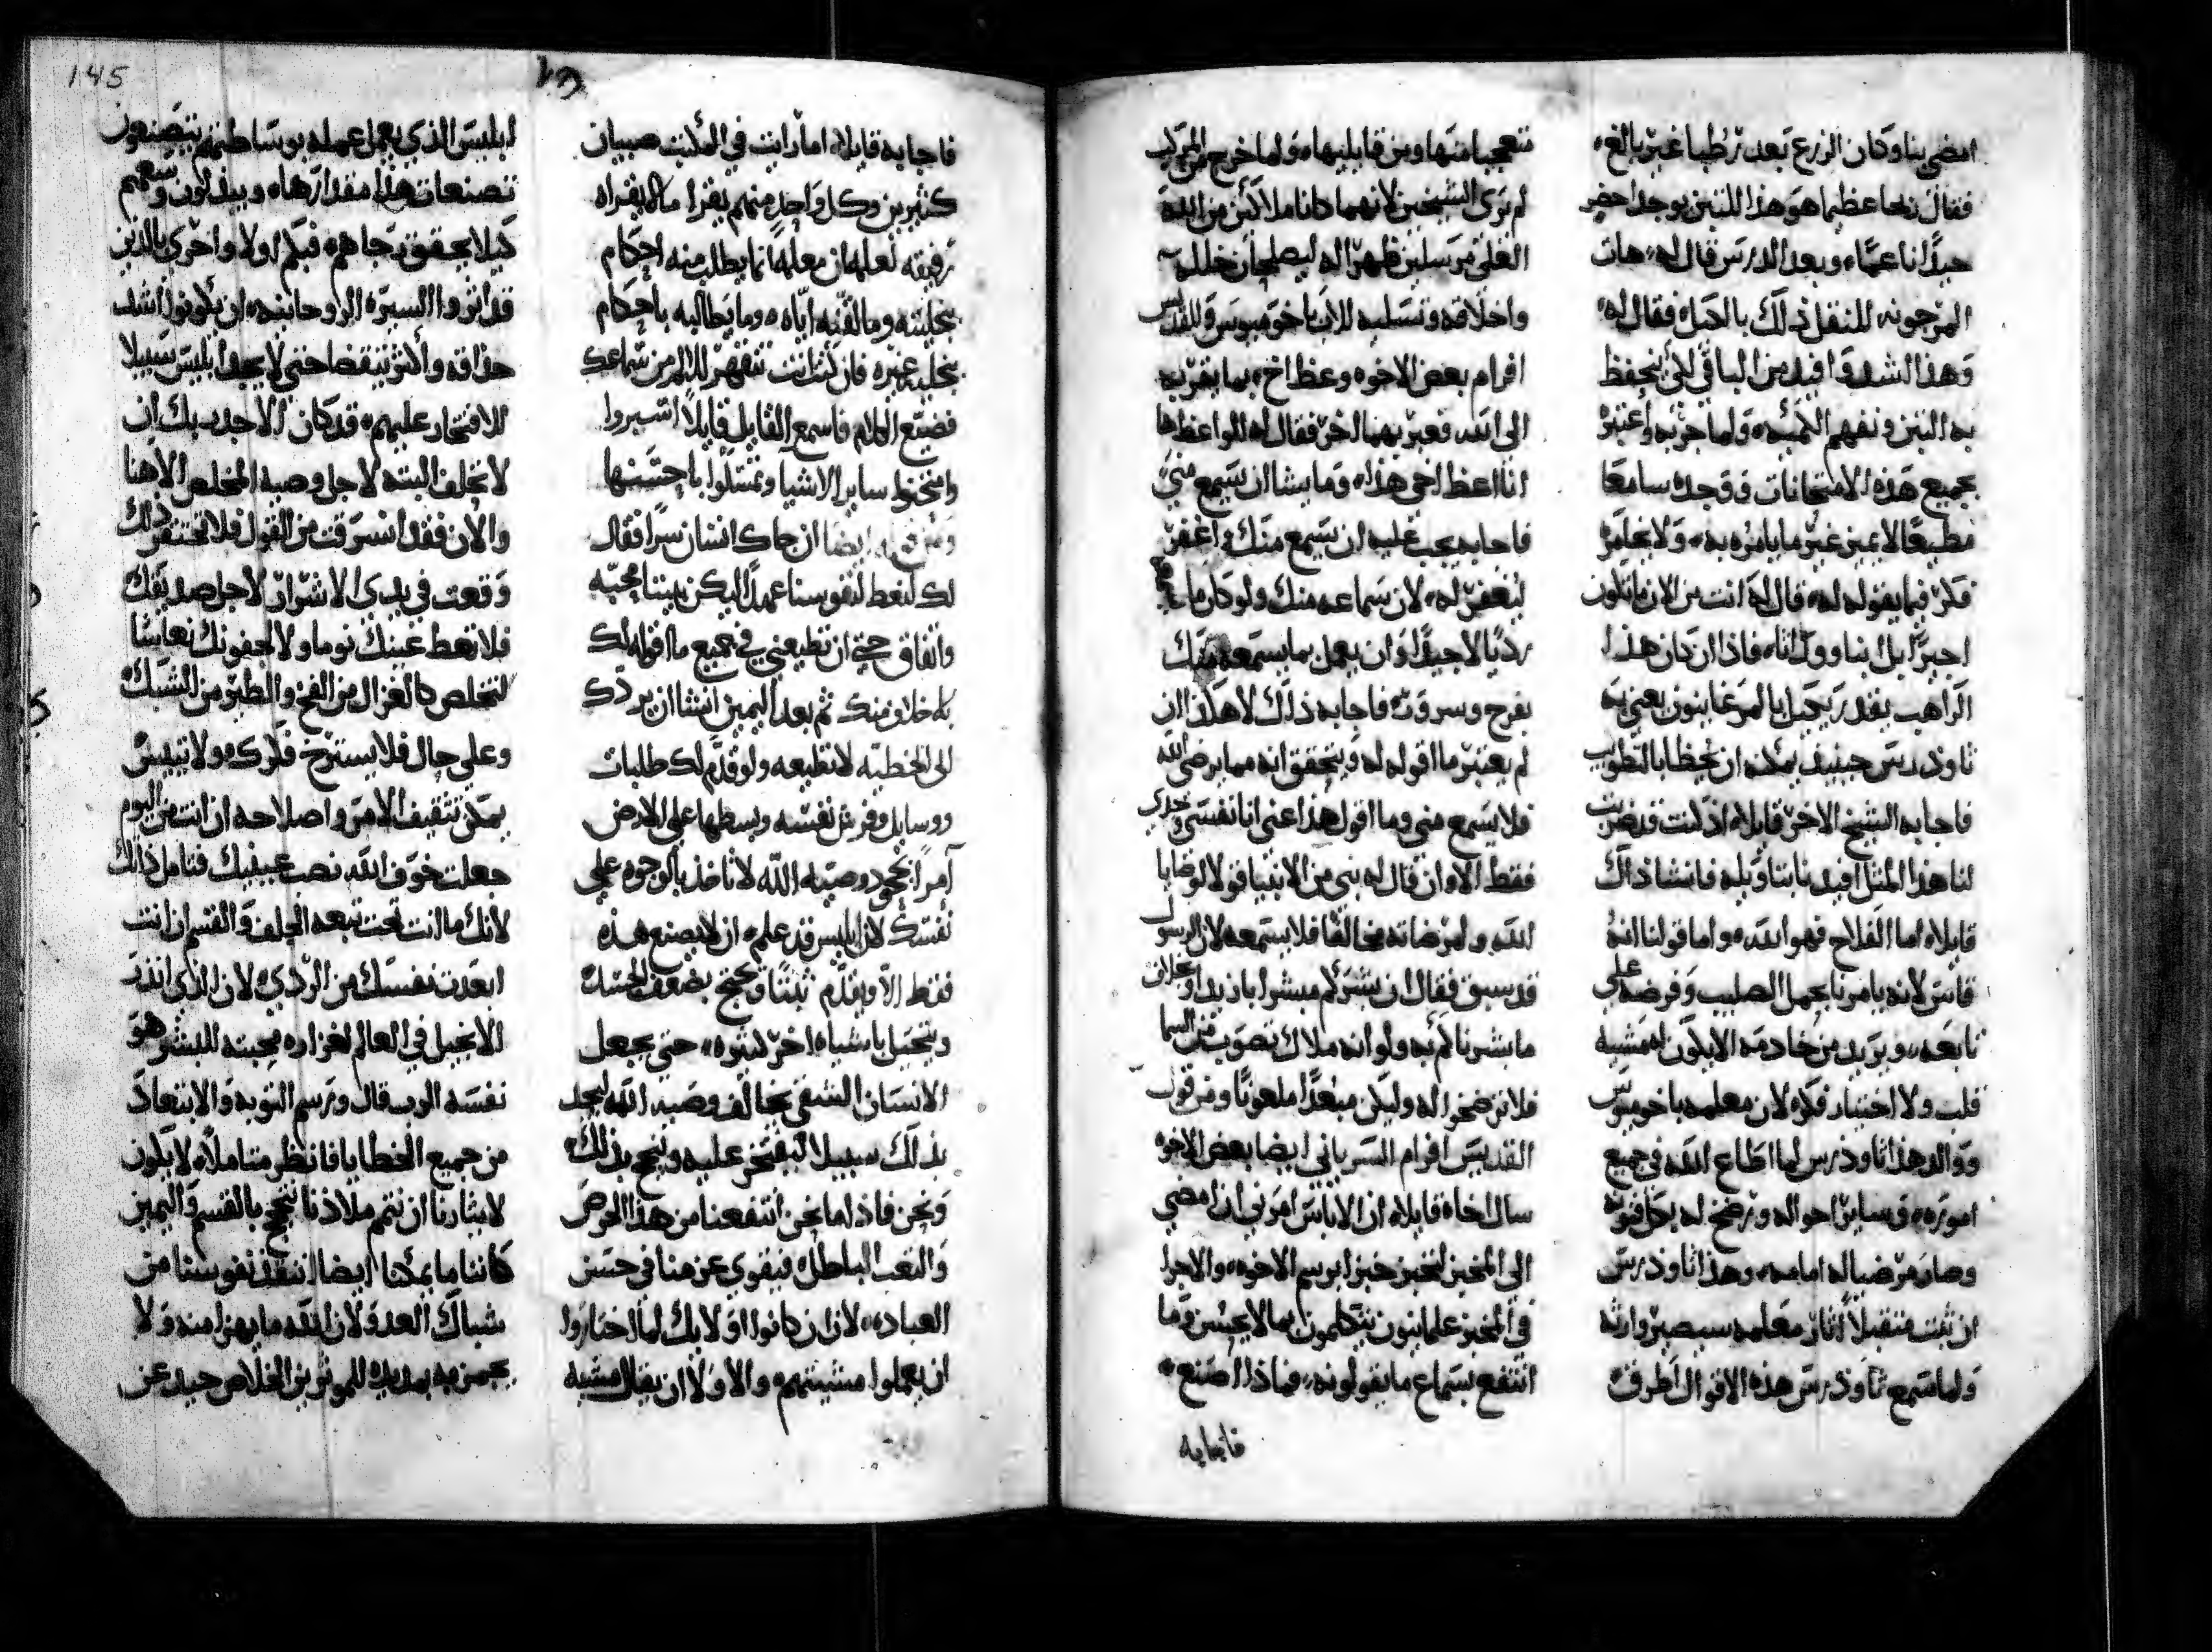 امضي بنا وكان الزرع بعد رطبا غير بالغ
فقال نعما عظيما هو هذا التبن يوجد اخضر
جيدًا انا عما وبعد الدرس قال له هات
المرجونه للنقل ذلك بالكيل فقال له
وهذا اشد وافيد من الباقي لكي نحفظ
به التبن ونفهم الكميه ولما جربه واعتبر
بجميع هذه الامتحانات ووجده سامعا
مطيعًا لا يميز غير ما يامره به ولا يخامر
فكر فيما يقوله له قال له انت من الان ما تكون
اجيرًا بل ابنا ووارثا فاذا ان كان هذا
الراهب بقدر
ثاوذرس حينيذ يمكنه ان يحظا بالتطويب
فاجابه الشيخ الاخر قايلا اذ كنت قد ضربت
لنا هذا المثل افيدنا بتاويله فانشا ذاك
قايلا اما الفلاح فهو الله واما قولنا انه
قاس لانه يامرنا بحمل الصليب وفرضه علي
تابعه ويريد من خادمه الا يكون له مشيه
قلب ولا اختيار فكر لان معلمه باخوميوس
ووالد هذا ثاوذرس لما اطاع الله في جميع
اموره وساير احواله ورضخ له بكل قوته
وصار مرضيا له امامه وهذا ثاوذرس
ان ثبت متقبلاً اثار معلمه سيصير وارثه
ولما سمع ثاوذرس هذه الاقوال اطرف
متعجبا منها ومن قايليها ولما خرج من المركب
لم يرى الشيخين لانهما كانا ملاكين من الله
العلي مرسلين ظهرا له ليصلحان خلله
واخلاقه وتسليه للاب باخوميوس وللقديس
افرام بعض الاخوه وعظ اخ بما يقربه
الى الله فعبر بهما اخر فقال له للواعظ ها
انا اعظ اخي هذا وما يشا ان يسمع مني
فاجابه يجب عليه ان يسمع منك واغفر
ليغفر له لان سماعه منك ولو كان ما
رديًا لا جيدًا وان يعمل بما يسمعه منك
بفرح وسرور فاجابه ذلك لا هكذا ان
لم يعتبر ما اقوله له ويتحقق انه مما يرضي الله
فلا يسمع مني وما اقول هذا عني انا نفسي وحدي
فقط الا وان قال له نبي من الانبيا قولا لوصايا
الله ولمرضاته مخالفًا فلا يستمعه لان الرسول
قد سبق فقال ان بشركم مبشرا بازيد او بخلاف
ما بشرناكم به ولو انه ملاك تصوب من السما
فلا ترضخوا له وليكن مبعدًا ملعونًا ومن قول
القديس افرام السرياني ايضا بعض الاخوه
سال اخاه قايلا ان الاباس امرني ان امضي
الي المخبز لنخبز خبزا برسم الاخوه والاجرا
في المخبز علمانيون يتكلمون بما لا يحسن وما
انتفع بسماع ما يقولونه فماذا اصنع
فاجابه
فاجابه قايلا اما رايت في المكتب صبيان
كثيرين وكل واحد منهم يقرا ما لا يقراه
رفيقه لعلمه ان معلمه انما يطلب منه احكام
تخليته وما لقنه اياه وما يطالبه باحكام
تخلية غيره فان كنت انت تتقهر للالم من سماعك
فضيع الكلام فاسمع القايل قايلاً اسبروا
وامتحنوا ساير الاشيا وتمسكوا باحسنها
ايضا ان جاك انسان سرًا فقال
لك لنعط لنفوسنا عهدًا ليكن بيننا محبه
واتفاق حتي ان تطيعني في جميع ما اقوله لك
بلا خلاف منك ثم بعد اليمين انشا ان يردك
الى الخطيه لا تطيعه ولو قدم لك طلبات
ووسايل وفرش نفسه وبسطها علي الارض
آمرًا بجحود وصية الله لا تاخذ بالوجوه علي
نفسك لان ابليس قد علم ان لا يصنع هذه
فقط الا ويقدم نبتًا ويحتج بضعف الجسد
ويتحيل باشياء اخر كثيره حتى يجعل
الانسان الشقي يخالف وصية الله ليجد
بذلك سبيلا ليفتخر عليه ويبتهج بذلك
ونحن فاذا ما نحن انتفعنا من هذا الحرص
والتعب الباطل فيقوي عزمنا في حسن
العباده لان ان كانوا اوليك لما اختاروا
ان يعملوا مشيتهم والا ولا ان يقال مشيه
ابليس الذي يعمل عمله بوساطتهم يتصنعون
تصنعات هذا مقدارها ويبذلون وسعهم
كيلا يحقق رجاهم فبكم اولا واحرى بالذين
قد اثروا السيره الروحانيه ان يكونوا اشد
حذاقه واكثر تيقضا حتى لا يجد ابليس سبيلا
للافتخار عليهم قد كان الاجدر بك ان
لا تحلف البته لاجل وصية المخلص الاهنا
والان فقد انسرقت من القول فلا تحتقر ذلك
وقعت في يدي الاشرار لاجل صديقك
فلا تعط عينك نوما ولا لجفونك نعاسا
لتتخلص كالغزال من الفخ والطير من الشبك
وعلي حال فلا يسترخ فكرك ولا تيئس
يمكن تثقيف الامر واصلاحه ان انت من اليوم
جعلت خوف الله نصب عينيك فتامل ذلك
لانك ما انت تحت تبعه الحلف والقسم ان انت
ابعدت نفسك من الردي لان الذي انذر
الانجيل في العالم لغزارة محبته للبشر هو
نفسه الرب قال ورسم التوبه والابتعاد
من جميع الخطايا فانظر متاملا لا يكون
لايثارنا ان نتمم ملاذنا نحتج بالقسم واليمين
كاننا ما يمكنا ايضا ان ننقذ نفوسنا من
شباك العدو لان الله ما يهزا منه ولا
يجمز به يمد يده للموثرين الخلاص حيد عن